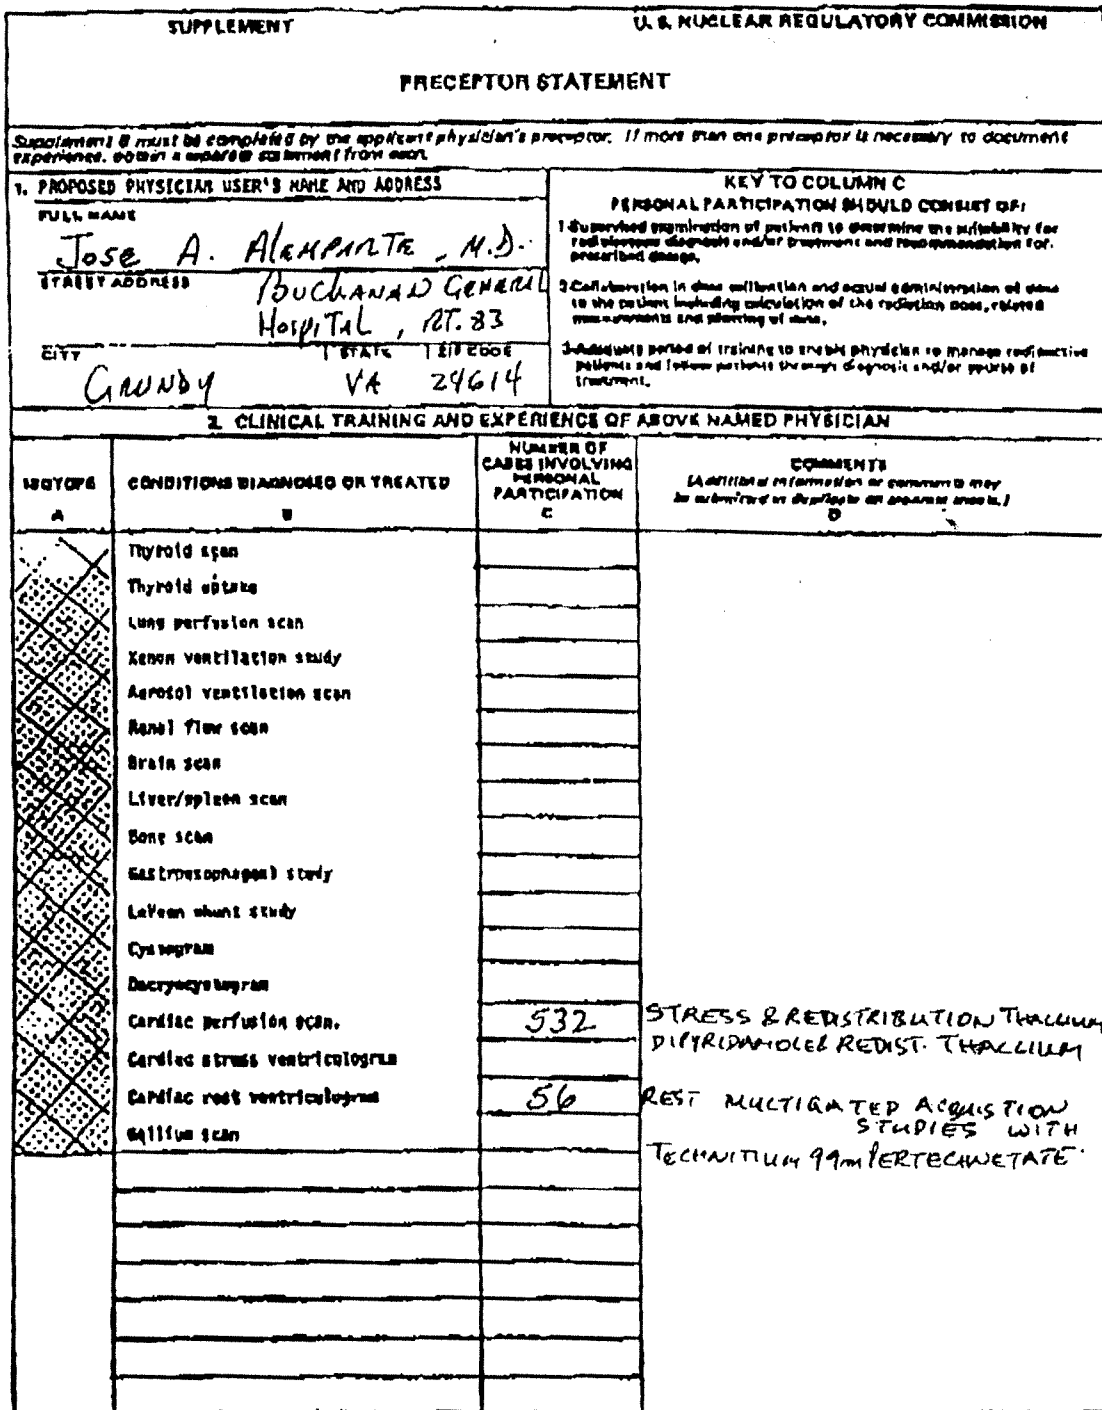 SUPPLEMENT
U. S. NUCLEAR REGULATORY COMMISSION
PRECEPTOR STATEMENT
Supplement B must be completed by the applicant physician's preceptor. If more than one preceptor is necessary to document
experience, obtain a separate statement from each.
1. PROPOSED PHYSICIAN USER'S NAME AND ADDRESS
FULL NAME
Jose A. Alemparte, M.D.
STREET ADDRESS
Buchanan General
Hospital, RT. 83
CITY
STATE
ZIP CODE
Grundy
VA
24614
KEY TO COLUMN C
PERSONAL PARTICIPATION SHOULD CONSIST OF:
1-Supervised examination of patients to determine the suitability for
radioisotope diagnosis and/or treatment and recommendation for
prescribed dosage.
2-Collaboration in dose calibration and actual administration of dose
to the patient including calculation of the radiation dose, related
measurements and plotting of data.
3-Adequate period of training to enable physician to manage radioactive
patients and follow patients through diagnosis and/or course of
treatment.
2. CLINICAL TRAINING AND EXPERIENCE OF ABOVE NAMED PHYSICIAN
ISOTOPE
A
CONDITIONS DIAGNOSED OR TREATED
B
NUMBER OF
CASES INVOLVING
PERSONAL
PARTICIPATION
C
COMMENTS
(Additional information or comments may
be submitted in duplicate on separate sheets.)
D
Thyroid scan
Thyroid uptake
Lung perfusion scan
Xenon ventilation study
Aerosol ventilation scan
Renal flow scan
Brain scan
Liver/spleen scan
Bone scan
Gastroesophageal study
LeVeen shunt study
Cystogram
Dacryocystogram
Cardiac perfusion scan. 532 STRESS & REDISTRIBUTION THALLIUM
DIPYRIDAMOLE & REDIST. THALLIUM
Cardiac stress ventriculogram
Cardiac rest ventriculogram 56 REST MULTIGATED ACQUISTION
STUDIES WITH
Gallium scan
TECHNITIUM 99m PERTECHNETATE.